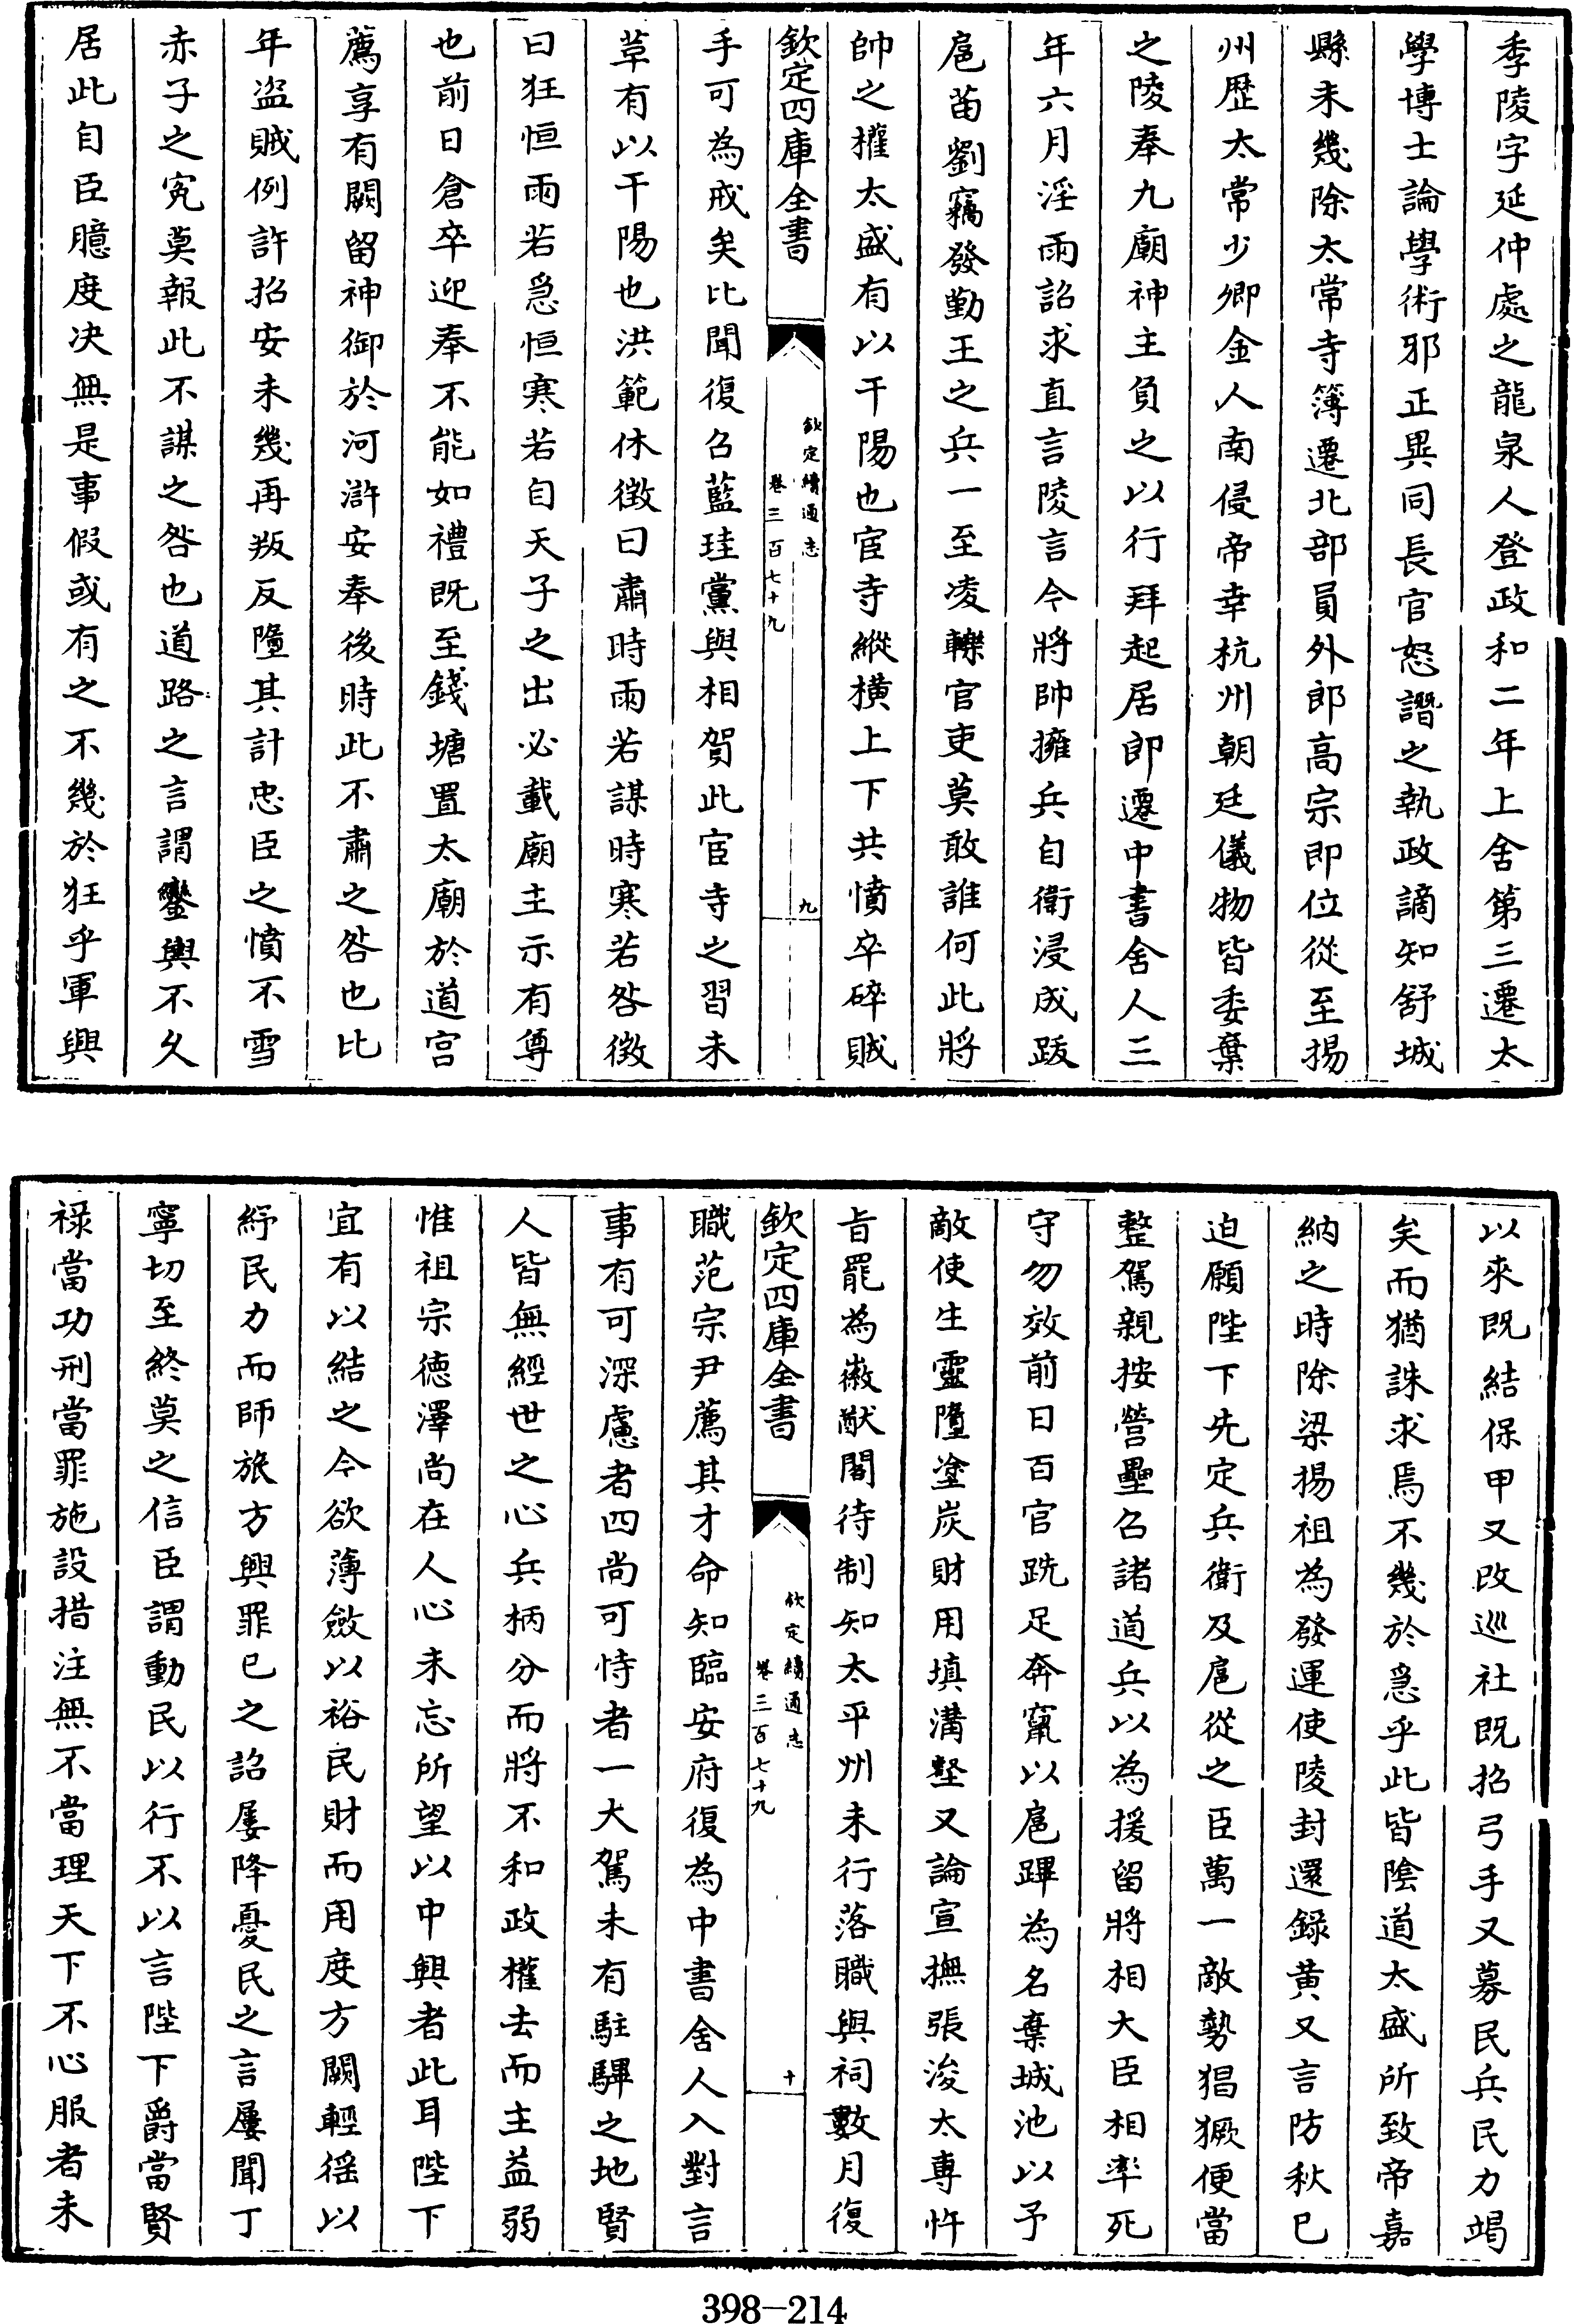 季陵字延仲處之龍泉人登政和二年上舍第三遷太
學博士論學術邪正異同長官怒譖之執政謫知舒城
縣未幾除太常寺簿遷北部員外郎高宗即位從至揚
州歷太常少卿金人南侵帝幸杭州朝廷儀物皆委棄
之陵奉九廟神主負之以行拜起居郎遷中書舍人三
年六月淫雨詔求直言陵言今將帥擁兵自衛浸成跋
扈苗劉竊發勤王之兵一至凌轢官吏莫敢誰何此將
帥之權太盛有以干陽也宦寺縱橫上下共憤卒碎賊
欽定四庫全書
欽定續通志
卷三百七十九
九
手可為戒矣比聞復召藍珪黨與相賀此宦寺之習未
革有以干陽也洪範休徴曰肅時雨若謀時寒若咎徴
曰狂恒雨若急恒寒若自天子之出必載廟主示有尊
也前日倉卒迎奉不能如禮既至錢塘置太廟於道宫
薦享有闕留神御於河滸安奉後時此不肅之咎也比
年盜賊例許招安未幾再叛反墮其計忠臣之憤不雪
赤子之寃莫報此不謀之咎也道路之言謂鑾輿不久
居此自臣臆度决無是事假或有之不幾於狂乎軍興
以來既結保甲又改巡社既招弓手又募民兵民力竭
矣而猶誅求焉不幾於急乎此皆陰道太盛所致帝嘉
納之時除梁揚祖為發運使陵封還録黄又言防秋已
迫願陛下先定兵衛及扈從之臣萬一敵勢猖獗便當
整駕親按營壘召諸道兵以為援留將相大臣相率死
守勿效前日百官跣足奔竄以扈蹕為名棄城池以予
敵使生靈墮塗炭財用填溝壑又論宣撫張浚太專忤
旨罷為徽猷閣待制知太平州未行落職與祠數月復
欽定四庫全書
欽定續通志
卷三百七十九
十
職范宗尹薦其才命知臨安府復為中書舍人入對言
事有可深慮者四尚可恃者一大駕未有駐驆之地賢
人皆無經世之心兵柄分而將不和政權去而主益弱
惟祖宗德澤尚在人心未忘所望以中興者此耳陛下
宜有以結之今欲薄斂以裕民財而用度方闕輕徭以
紓民力而師旅方興罪已之詔屢降憂民之言屢聞丁
寧切至終莫之信臣謂動民以行不以言陛下爵當賢
禄當功刑當罪施設措注無不當理天下不心服者未
398-214